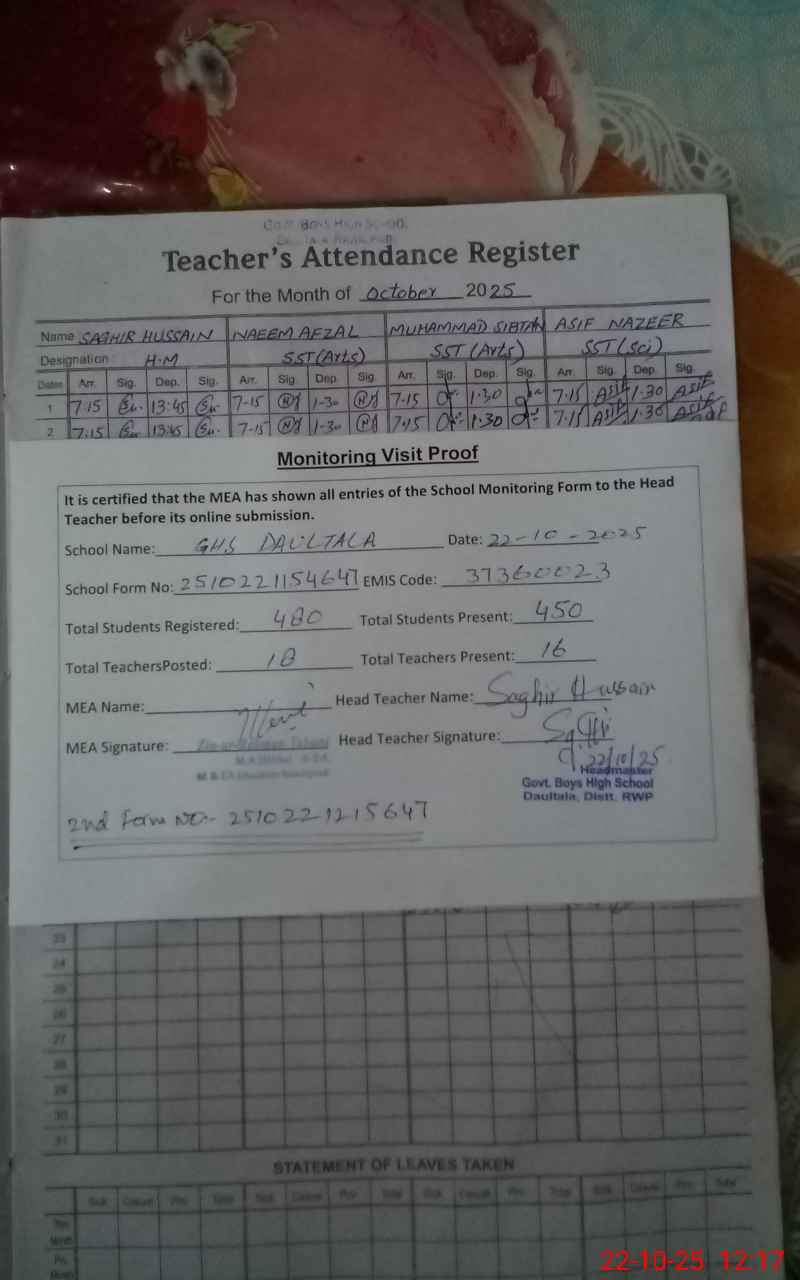 GOVT BOYS HIGH SCHOOL
Teacher's Attendance Register
For the Month of October 2025
Name SAGHIR HUSSAIN NAEEM AFZAL MUHAMMAD SIBTAN ASIF NAZEER
Designation : H.M SST(Arts) SST (Arts) SST(Sci)
Dates Arr. Sig. Dep. Sig. Arr. Sig. Dep. Sig. Arr. Sig. Dep. Sig. Arr. Sig. Dep. Sig.
1 7.15 13:45 7-15 1-30 7-15 1.30 7.15 Asif 1.30 Asif
2 7:15 13:45 7-15 1-30 7.15 1.30 7.15 Asif 1.30 Asif
Monitoring Visit Proof
It is certified that the MEA has shown all entries of the School Monitoring Form to the Head
Teacher before its online submission.
School Name: GHS DAULTALA Date: 22-10-2025
School Form No: 2510221154647 EMIS Code: 37360023
Total Students Registered: 480 Total Students Present: 450
Total TeachersPosted: 18 Total Teachers Present: 16
MEA Name: Head Teacher Name: Saghir Hussain
MEA Signature: Head Teacher Signature:
22/10/25
Headmaster
Govt. Boys High School
Daultala, Distt. RWP
2nd Form NO:- 2510221215647
23
24
25
26
27
28
29
30
31
STATEMENT OF LEAVES TAKEN
Sick Casual Priv. Total Sick Casual Priv. Total Sick Casual Priv. Total Sick Casual Priv. Total
22-10-25 12:17